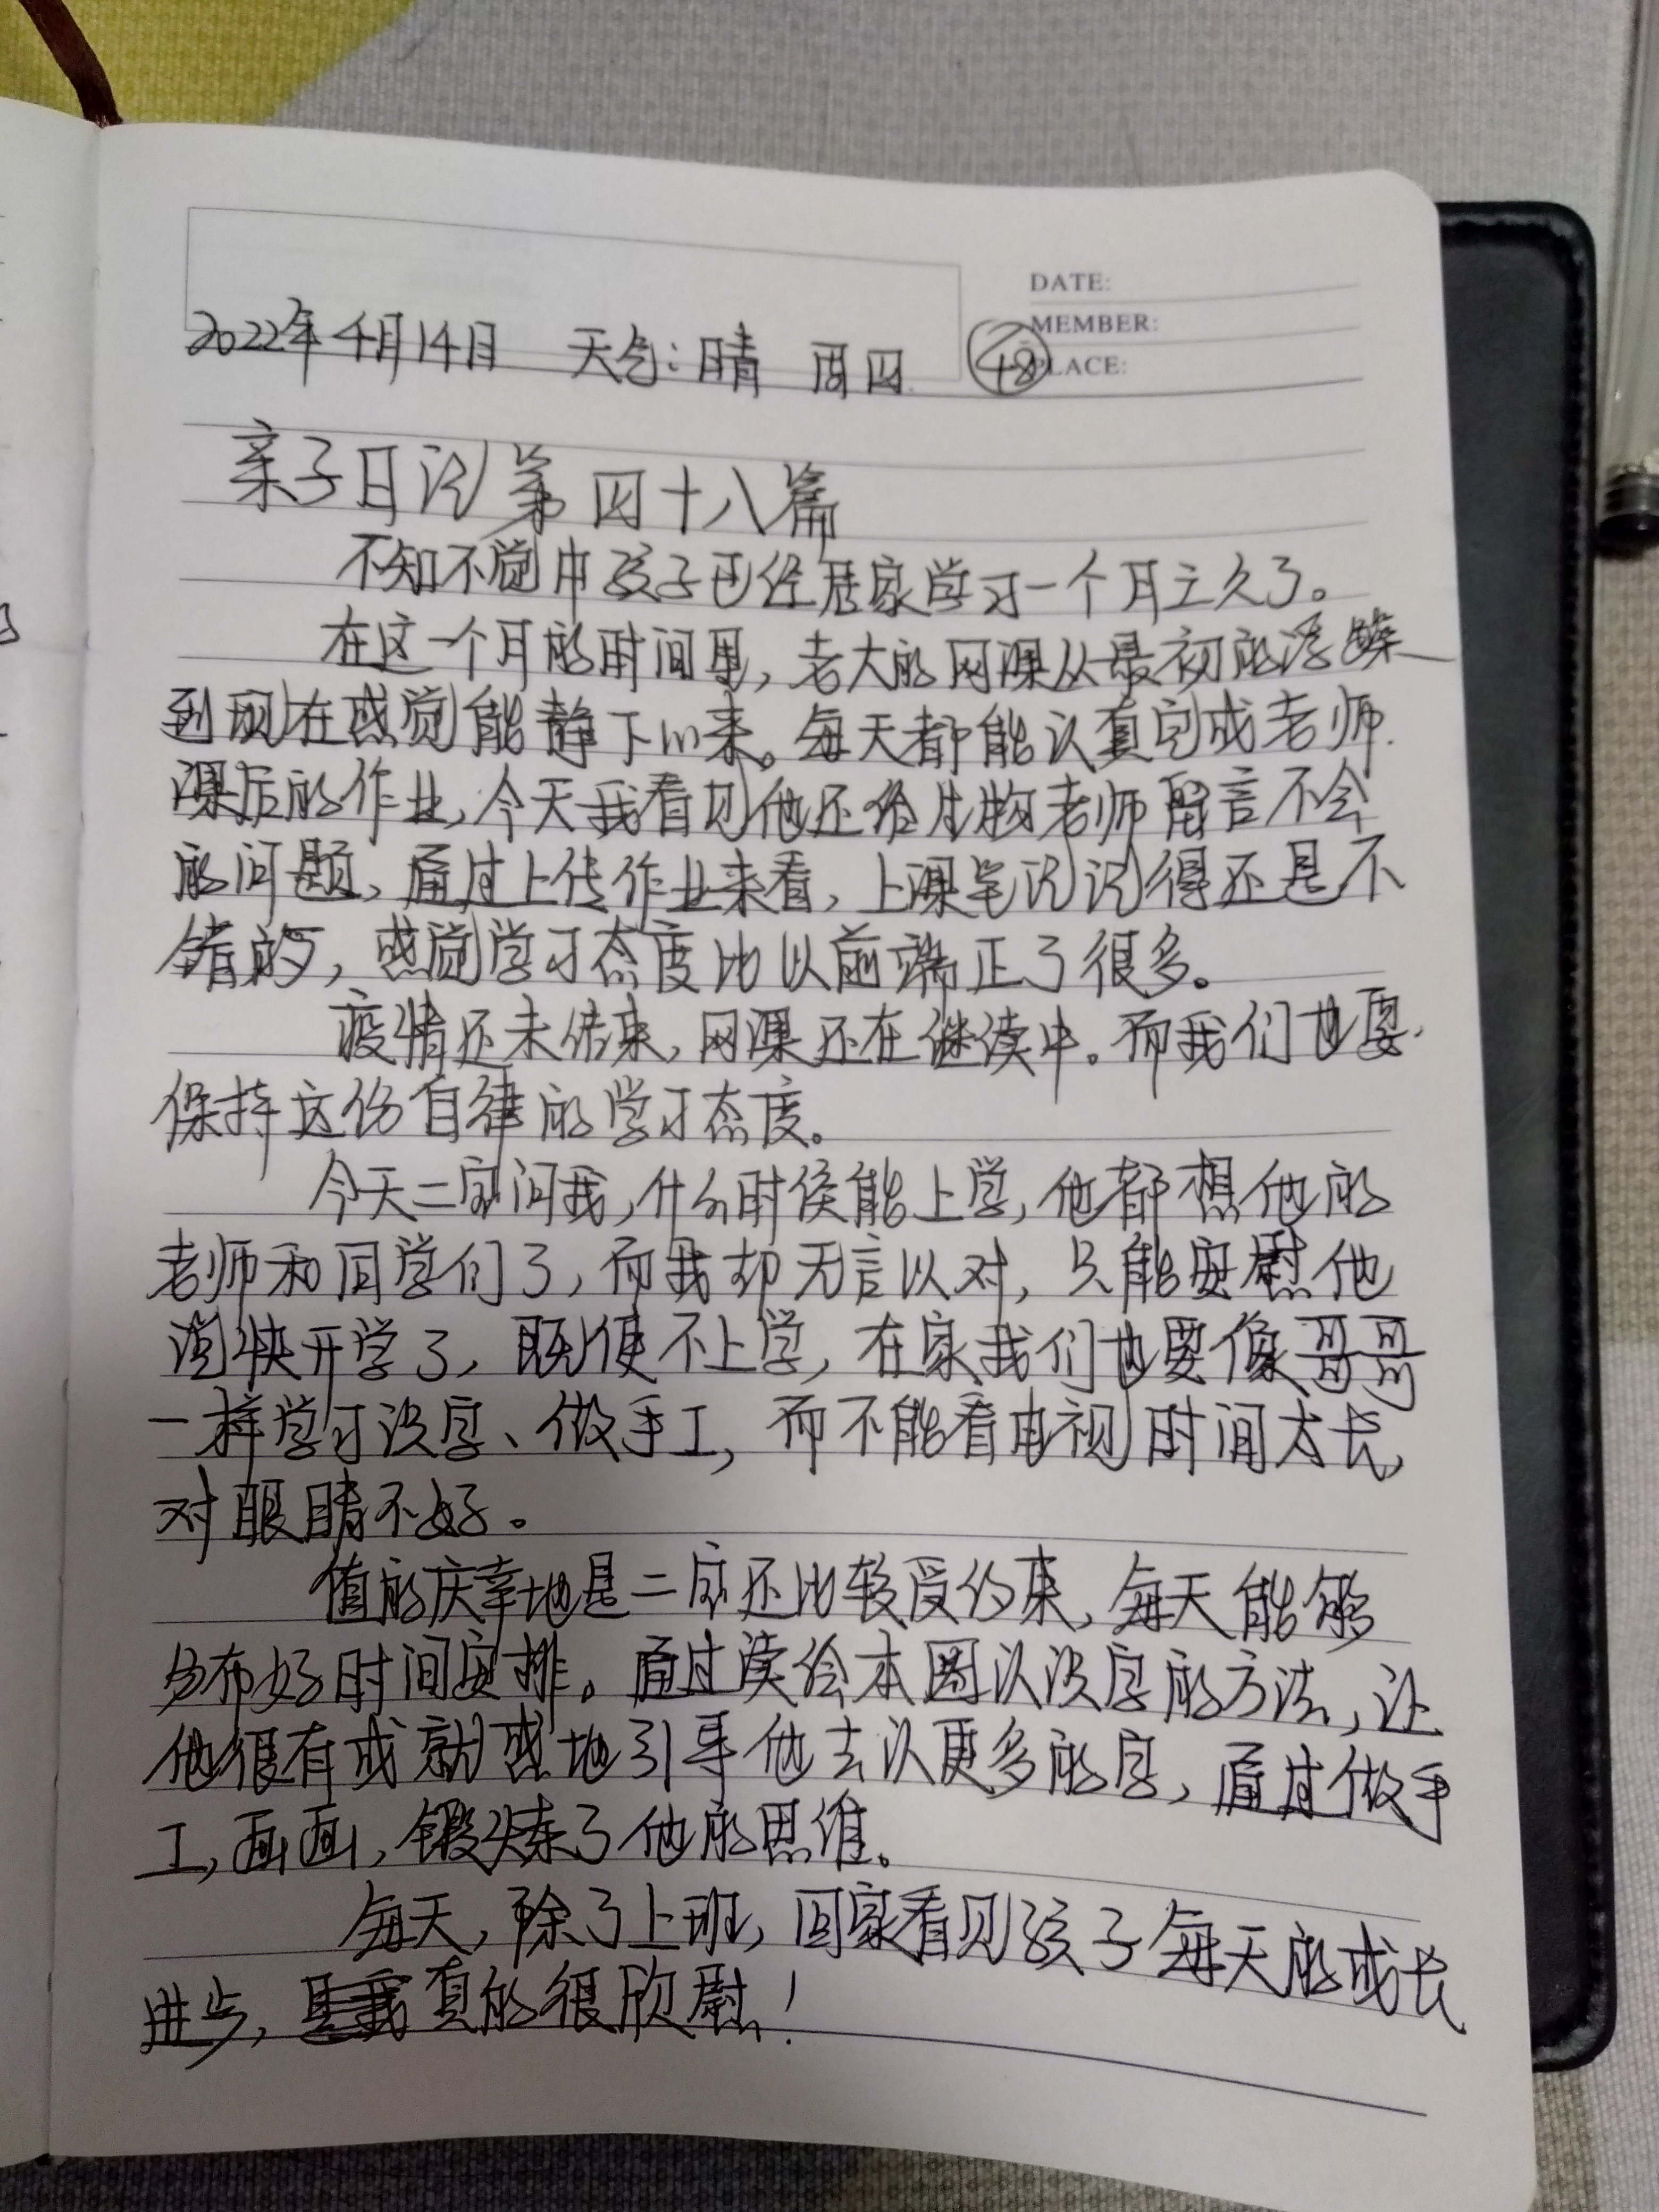 DATE:
MEMBER:
PLACE:
2022年4月14日 天气:晴 周四 48
亲子日记第四十八篇
不知不觉中孩子已经居家学习一个月之久了。
在这一个月的时间里,老大的网课从最初的浮躁
到现在感觉能静下心来。每天都能认真完成老师
课后的作业,今天我看见他还给生物老师留言不会
的问题,通过上传作业来看,上课笔记记得还是不
错的,感觉学习态度比以前端正了很多。
疫情还未结束,网课还在继续中。而我们也要
保持这份自律的学习态度。
今天二宝问我,什么时候能上学,他都想他的
老师和同学们了,而我却无言以对,只能安慰他
说快开学了,既便不上学,在家我们也要像哥哥
一样学习识字、做手工,而不能看电视时间太长,
对眼睛不好。
值的庆幸地是二宝还比较受约束,每天能够
分布好时间安排。通过读绘本圈认识字的方法,让
他很有成就感地引导他去认更多的字,通过做手
工,画画,锻炼了他的思维。
每天,除了上班,回家看见孩子每天的成长
进步,我真的很欣慰!